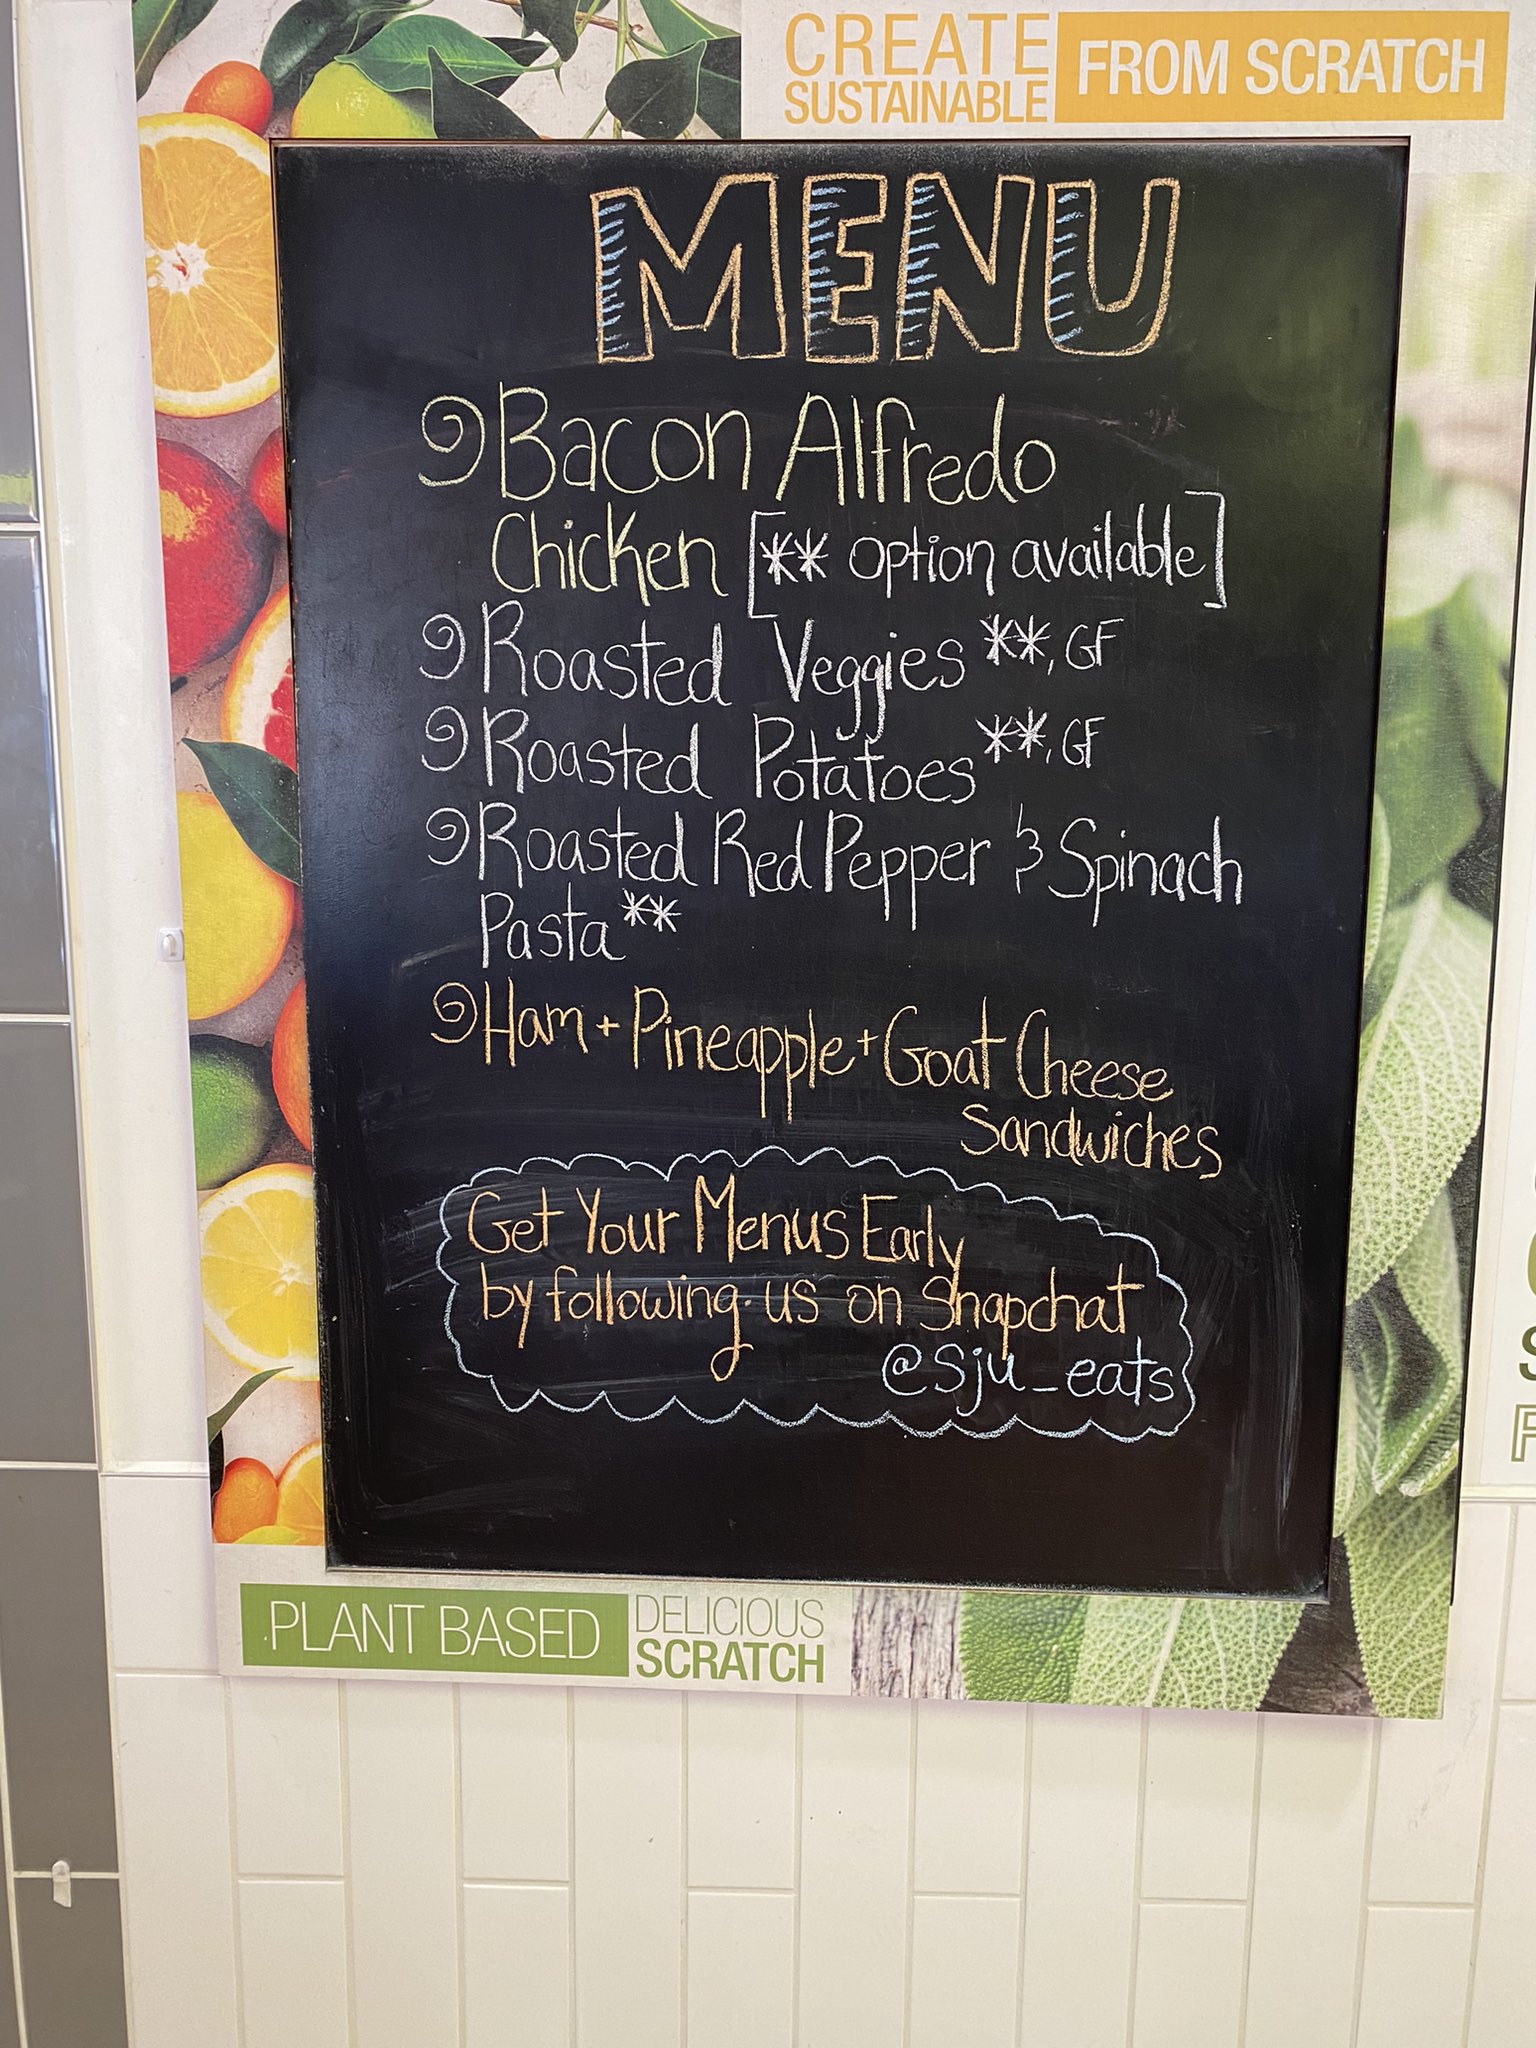 CREATE
SUSTAINABLE
FROM SCRATCH
MENU
Bacon Alfredo
Chicken [** option available]
Roasted Veggies **, GF
Roasted Potatoes **, GF
Roasted Red Pepper & Spinach
Pasta **
Ham + Pineapple + Goat Cheese
Sandwiches
Get Your Menus Early
by following us on Snapchat
@sju_eats
PLANT BASED
DELICIOUS
SCRATCH